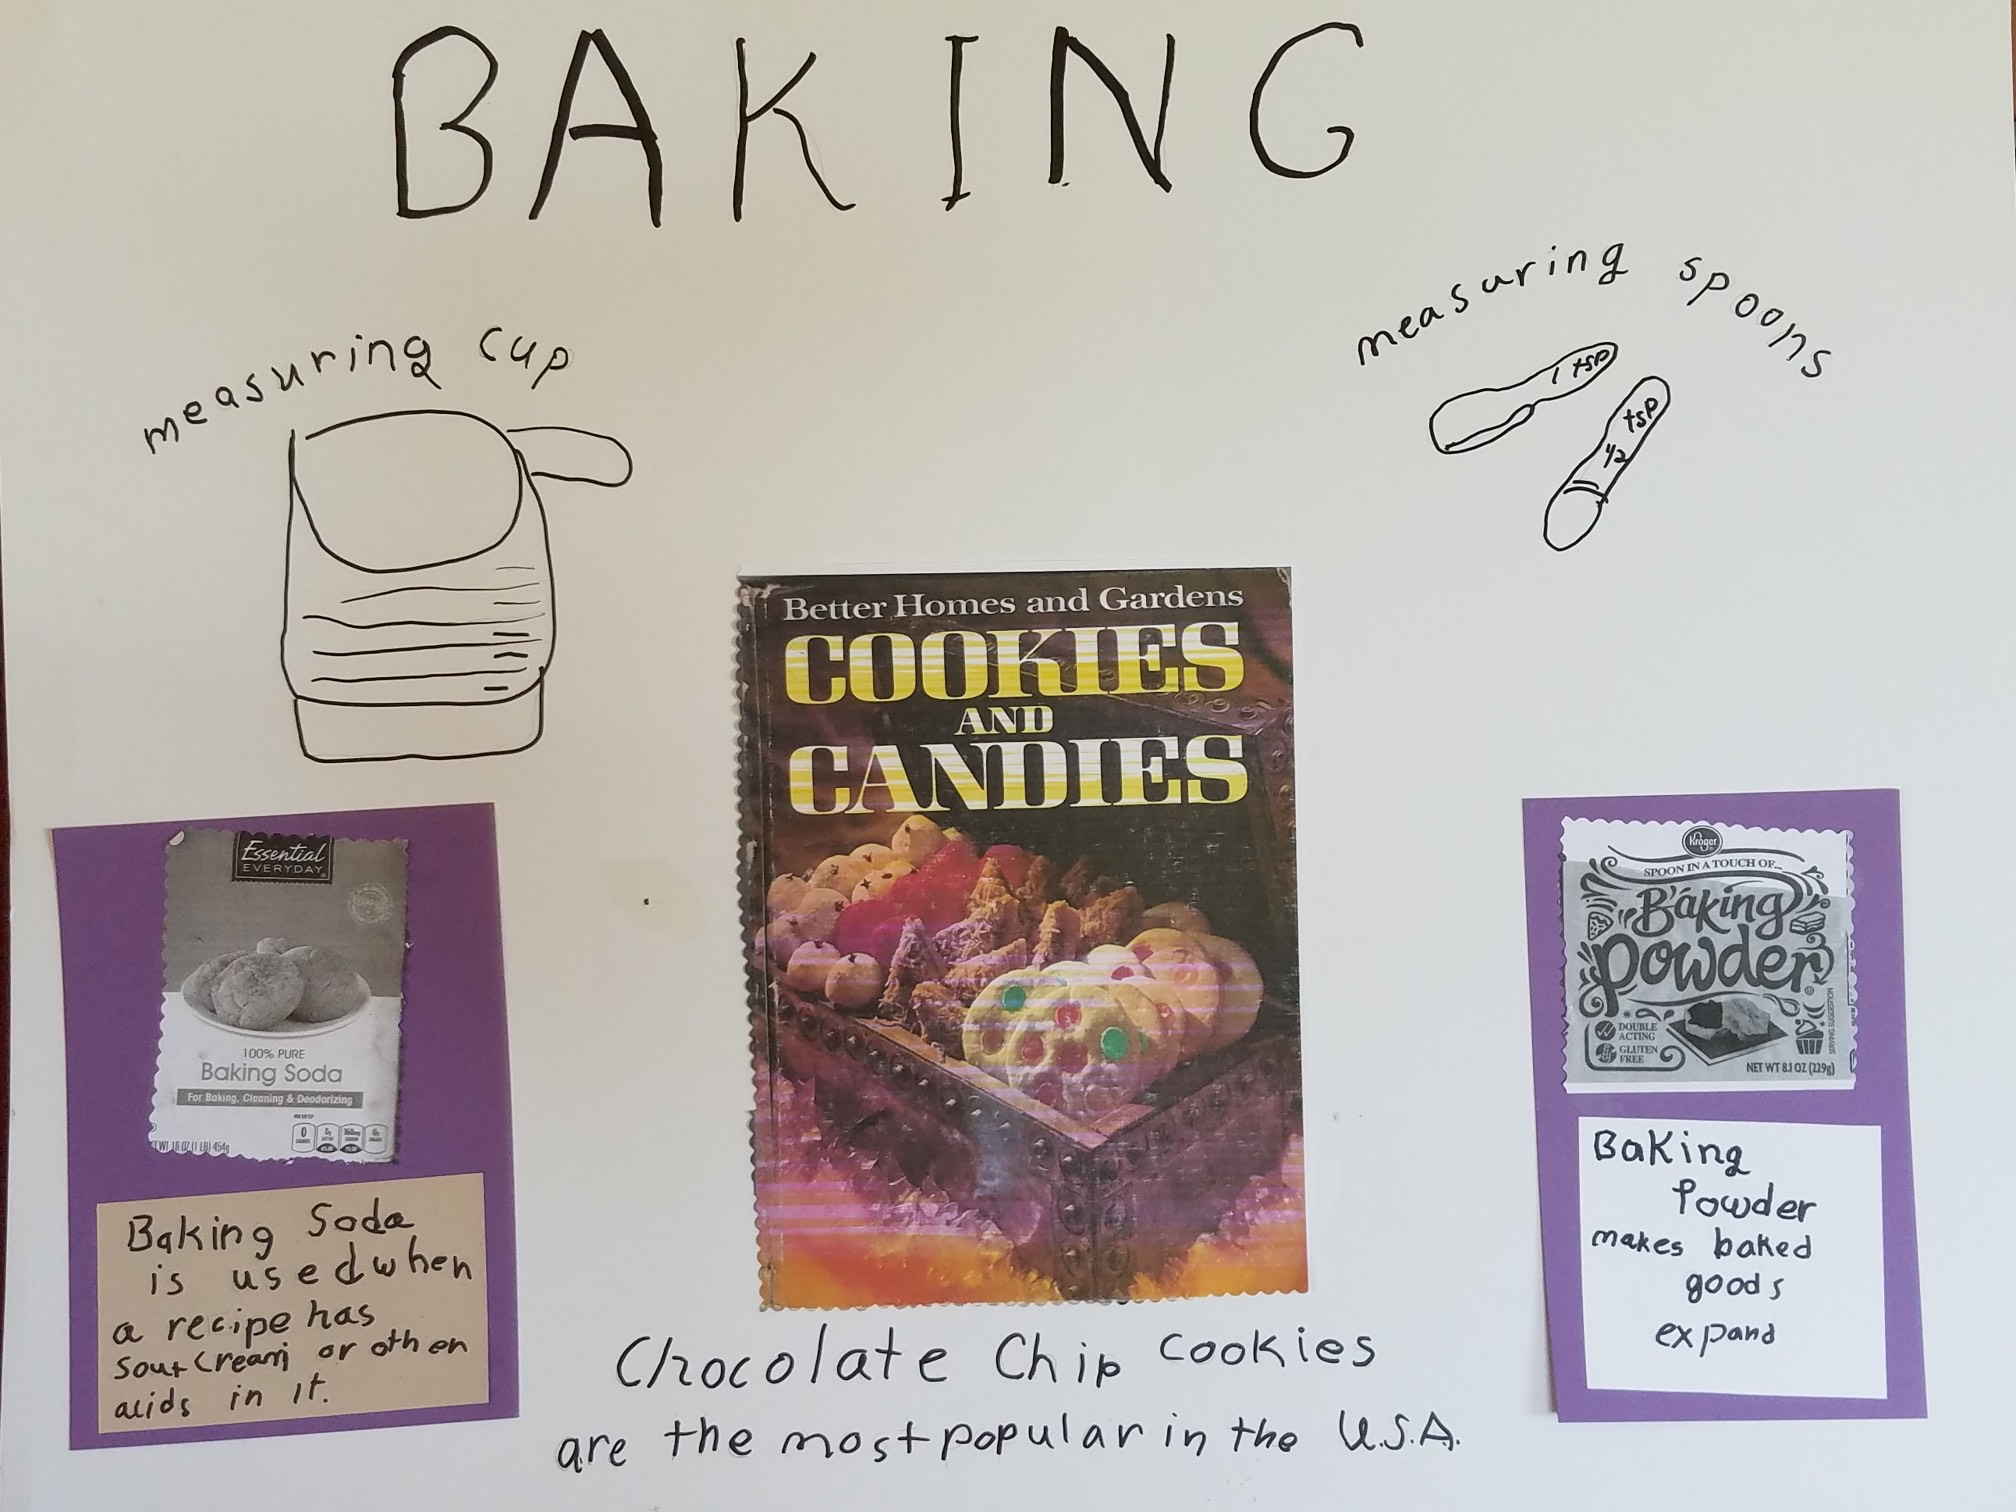 BAKING
measuring cup
measuring spoons
1 tsp
1/2 tsp
Better Homes and Gardens
COOKIES
AND
CANDIES
Essential
EVERYDAY
100% PURE
Baking Soda
For Baking, Cleaning & Deodorizing
WT 16 OZ (1 LB) 454g
Baking Soda
is used when
a recipe has
Sour Cream or other
acids in it.
Kroger
SPOON IN A TOUCH OF...
Baking
Powder
DOUBLE
ACTING
GLUTEN
FREE
SERVING SUGGESTION
NET WT 8.1 OZ (229g)
Baking
Powder
makes baked
goods
expand
Chocolate Chip Cookies
are the most popular in the U.S.A.